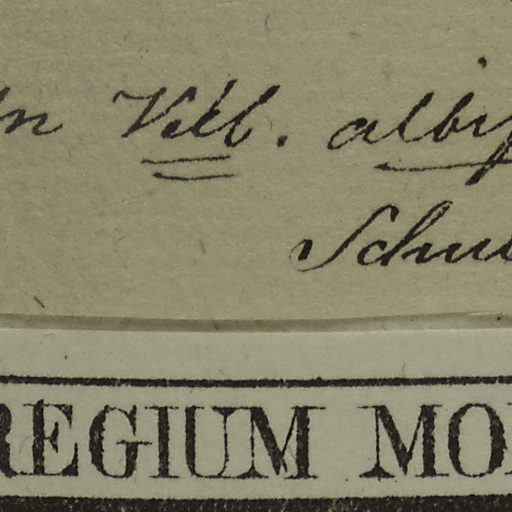 Vell. albi
Schul
REGIUM MO